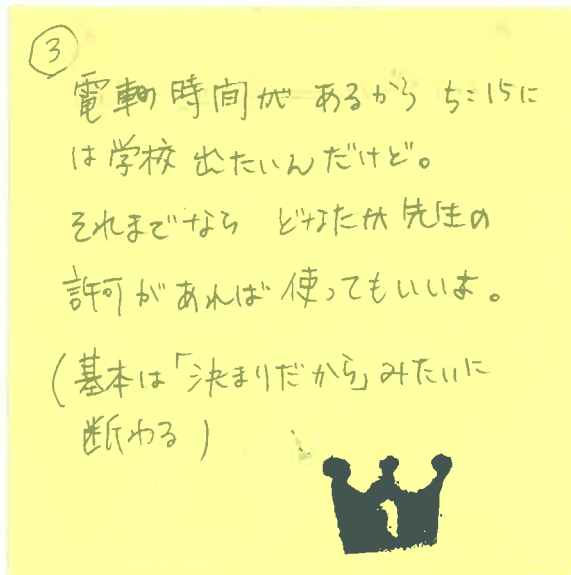 ③
電車の時間が あるから 5:15に
は学校 出たいんだけど。
それまでなら どなたか 先生の
許可があれば 使ってもいいよ。
(基本は「決まりだから」みたいに
断わる)
1